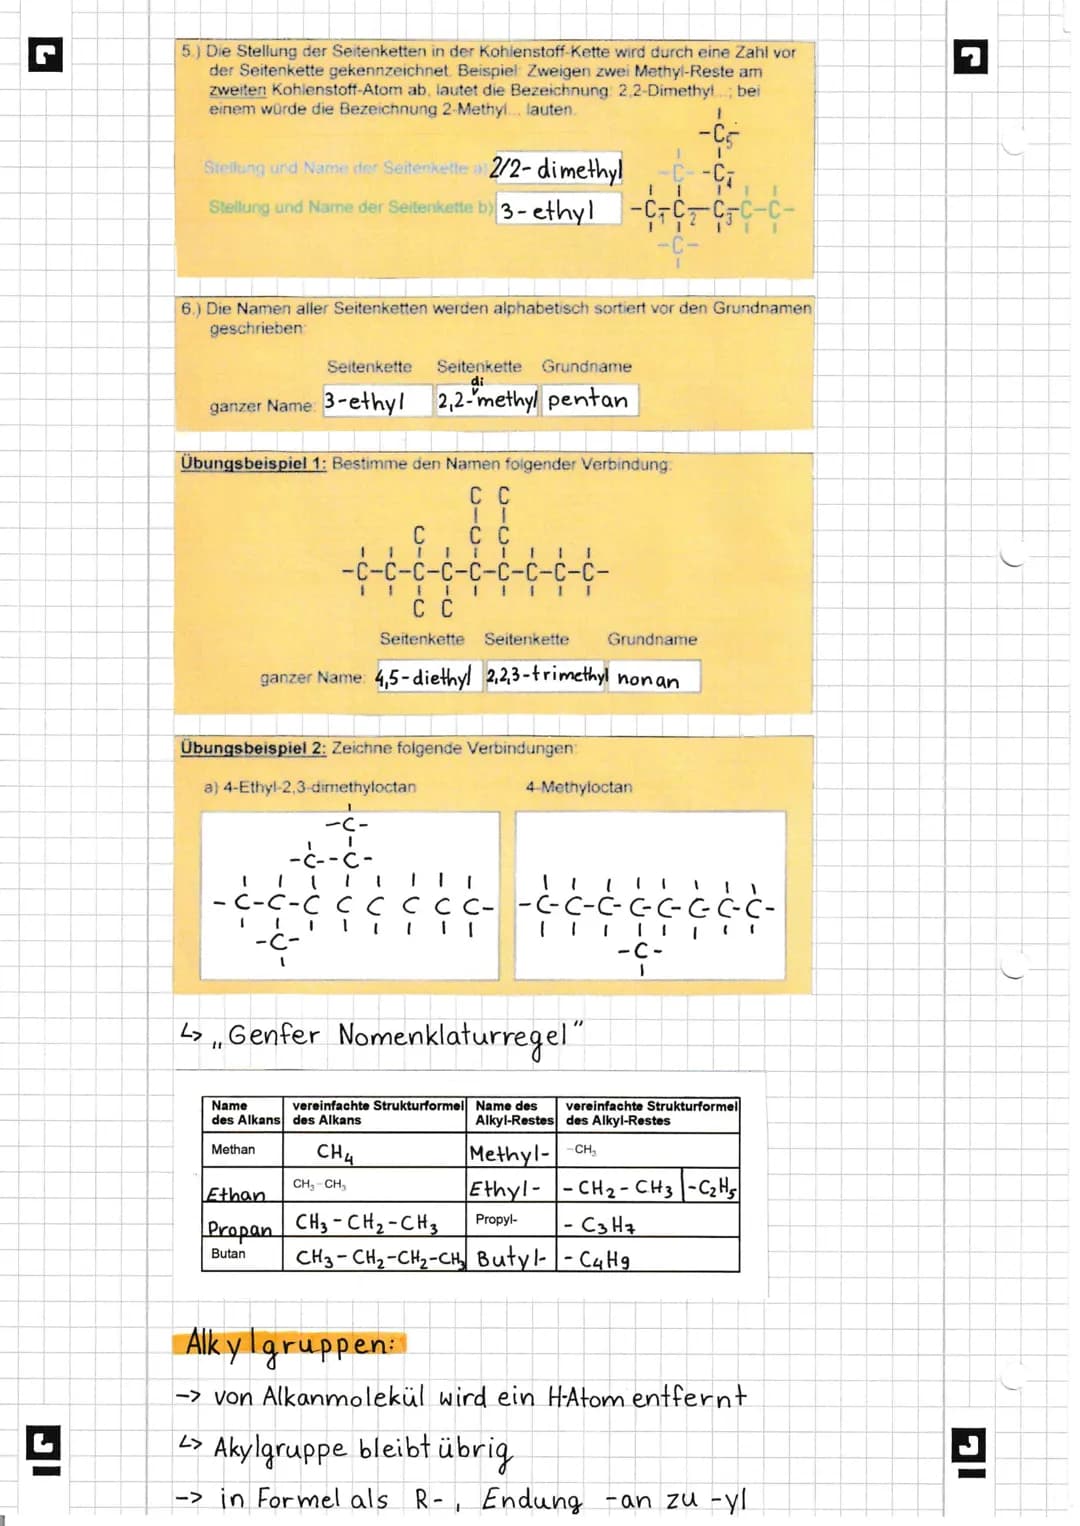 5.) Die Stellung der Seitenketten in der Kohlenstoff-Kette wird durch eine Zahl vor
der Seitenkette gekennzeichnet. Beispiel: Zweigen zwei Methyl-Reste am
zweiten Kohlenstoff-Atom ab, lautet die Bezeichnung: 2,2-Dimethyl...; bei
einem würde die Bezeichnung 2-Methyl... lauten.
-C5
Stellung und Name der Seitenkette a) 2/2-dimethyl -C- -C4
Stellung und Name der Seitenkette b) 3-ethyl -C1-C2-C3-C-C-
-C-
6.) Die Namen aller Seitenketten werden alphabetisch sortiert vor den Grundnamen
geschrieben:
Seitenkette Seitenkette Grundname
di
ganzer Name: 3-ethyl 2,2-methyl pentan
Übungsbeispiel 1: Bestimme den Namen folgender Verbindung:
C C
C C C
-C-C-C-C-C-C-C-C-C-
C C
Seitenkette Seitenkette Grundname
ganzer Name: 4,5-diethyl 2,2,3-trimethyl nonan
Übungsbeispiel 2: Zeichne folgende Verbindungen:
a) 4-Ethyl-2,3-dimethyloctan 4-Methyloctan
-C-
-C--C-
-C-C-C C C C C C- -C-C-C-C-C-C-C-C-
-C- -C-
↳ „Genfer Nomenklaturregel"
Name des Alkans vereinfachte Strukturformel des Alkans Name des Alkyl-Restes vereinfachte Strukturformel des Alkyl-Restes
Methan CH4 Methyl- -CH3
Ethan CH3-CH3 Ethyl- -CH2-CH3 -C2H5
Propan CH3-CH2-CH3 Propyl- -C3H7
Butan CH3-CH2-CH2-CH3 Butyl- -C4H9
Alkylgruppen:
-> von Alkanmolekül wird ein H-Atom entfernt
↳ Akylgruppe bleibt übrig
-> in Formel als R-, Endung -an zu -yl